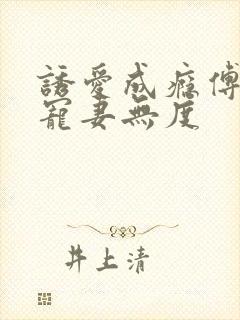 誘愛成癮傅
寵妻無度
井上清